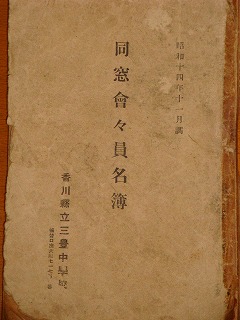 昭和十四年十一月調
同窓會々員名簿
香川縣立三豊中學校